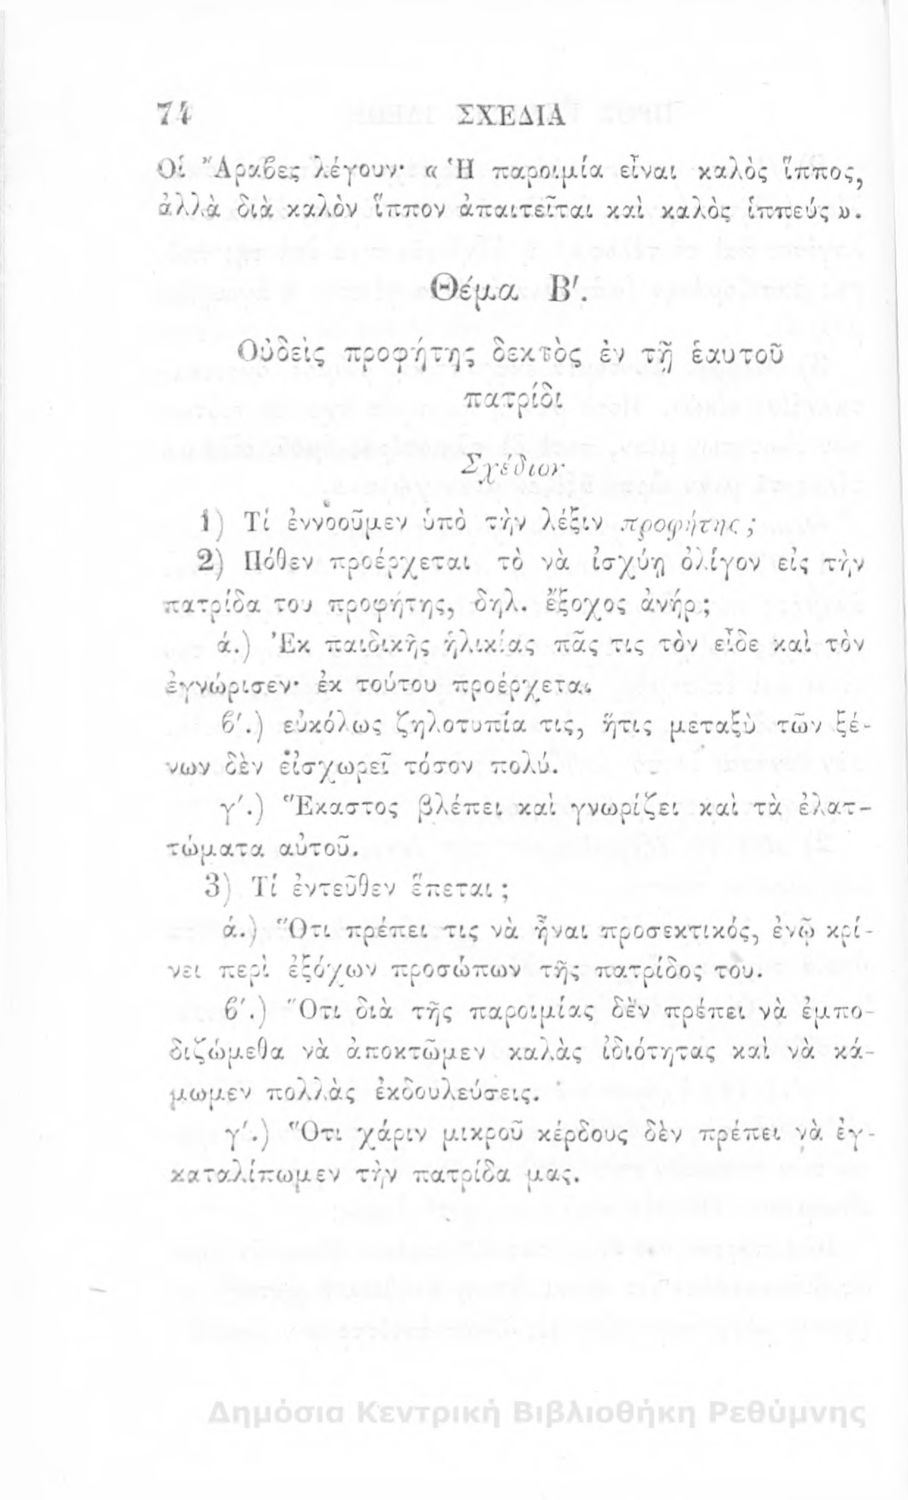 74 ΣΧΕΔΙΑ
Οἱ Ἄραβες λέγουν· «Ἡ παροιμία εἶναι καλὸς ἵππος,
ἀλλὰ διὰ καλὸν ἵππον ἀπαιτεῖται καὶ καλὸς ἱππεύς».
Θέμα Β'.
Οὐδεὶς προφήτης δεκτὸς ἐν τῇ ἑαυτοῦ
πατρίδι
Σχέδιον
1) Τί ἐννοοῦμεν ὑπὸ τὴν λέξιν προφήτης;
2) Πόθεν προέρχεται τὸ νὰ ἰσχύῃ ὀλίγον εἰς τὴν
πατρίδα του προφήτης, δηλ. ἔξοχος ἀνήρ;
ά.) Ἐκ παιδικῆς ἡλικίας πᾶς τις τὸν εἶδε καὶ τὸν
ἐγνώρισεν· ἐκ τούτου προέρχεται
β'.) εὐκόλως ζηλοτυπία τις, ἥτις μεταξὺ τῶν ξέ-
νων δὲν εἰσχωρεῖ τόσον πολύ.
γ'.) Ἕκαστος βλέπει καὶ γνωρίζει καὶ τὰ ἐλατ-
τώματα αὐτοῦ.
3) Τί ἐντεῦθεν ἕπεται;
ά.) Ὅτι πρέπει τις νὰ ἦναι προσεκτικός, ἐνῷ κρί-
νει περὶ ἐξόχων προσώπων τῆς πατρίδος του.
β'.) Ὅτι διὰ τῆς παροιμίας δὲν πρέπει νὰ ἐμπο-
διζώμεθα νὰ ἀποκτῶμεν καλὰς ἰδιότητας καὶ νὰ κά-
μωμεν πολλὰς ἐκδουλεύσεις.
γ'.) Ὅτι χάριν μικροῦ κέρδους δὲν πρέπει νὰ ἐγ-
καταλίπωμεν τὴν πατρίδα μας.
Δημόσια Κεντρική Βιβλιοθήκη Ρεθύμνης